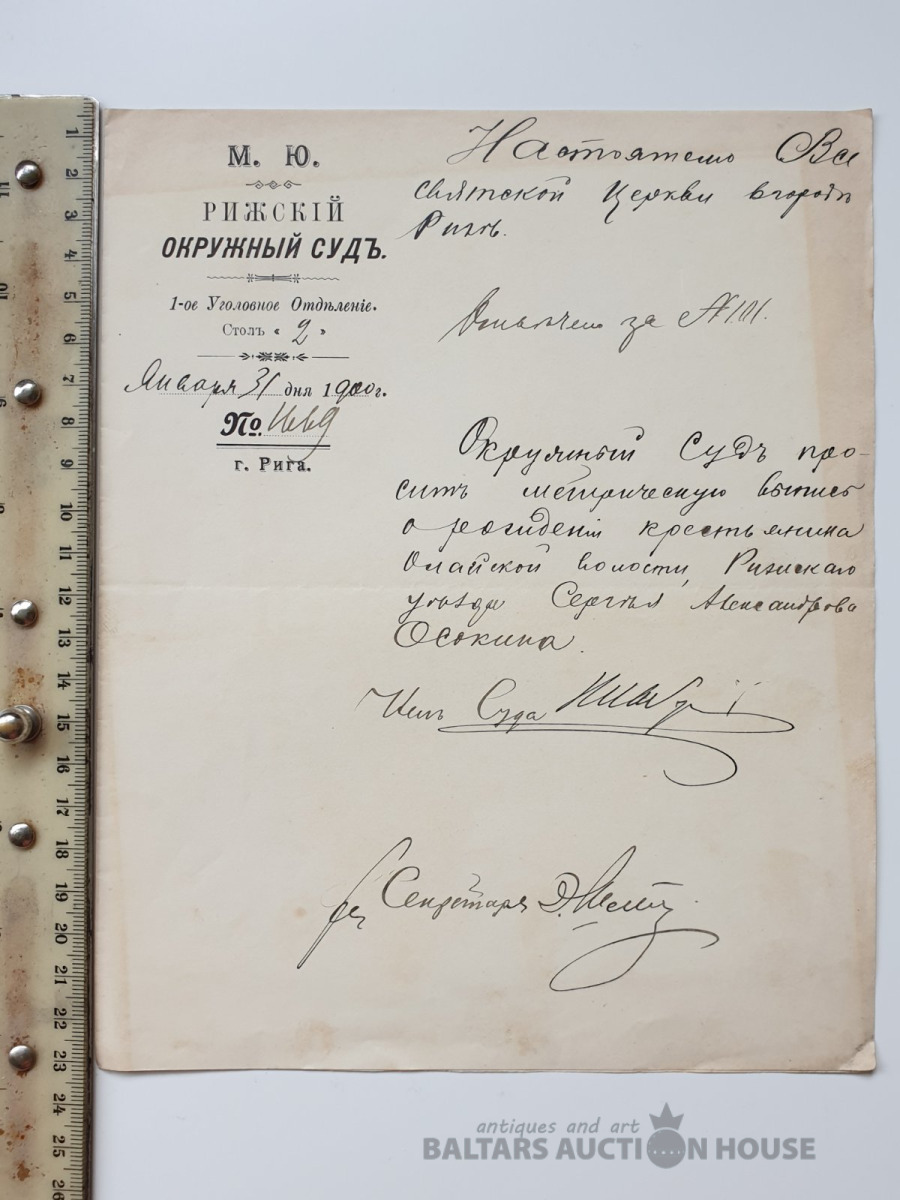 М. Ю.
РИЖСКІЙ
ОКРУЖНЫЙ СУДЪ.
1-ое Уголовное Отдѣленіе.
Столъ « 2 »
Января 31 дня 1900 г.
№ 1669
г. Рига.
Настоятелю Все
святской Церкви въ городѣ
Ригѣ.
за № 101.
Окружный Судъ про-
ситъ метрическую выпись
о рожденіи крестьянина
Олайской волости, Рижскаго
уѣзда Сергѣя Александрова
Осокина.
Член Суда
Секретаря Д.
1 2 3 4 5 6 7 8 9 10 11 12 13 14 15 16 17 18 19 20 21 22 23 24 25 26
antiques and art
BALTARS AUCTION HOUSE